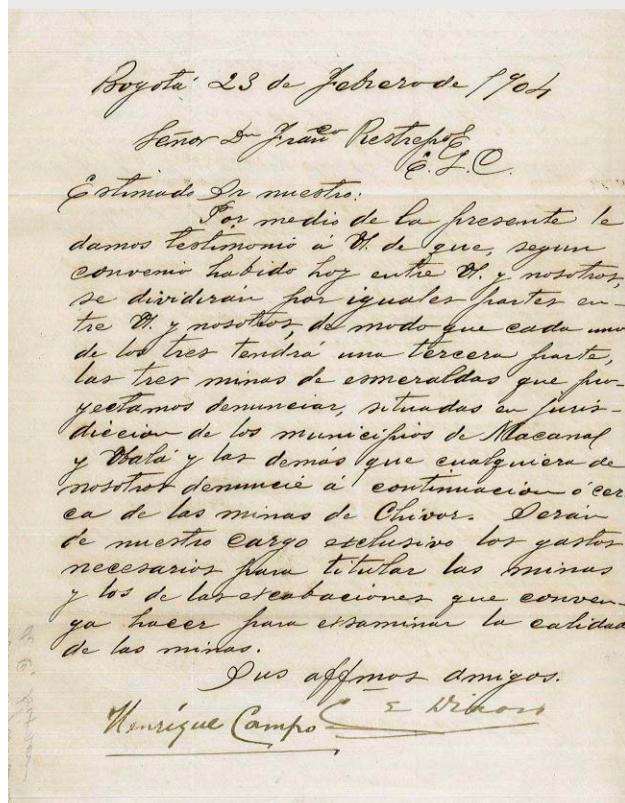 Bogotá 23 de Febrero de 1904
Señor Dn Franco Restrepo E.
E. L. C.
Estimado Sr nuestro:
Por medio de la presente le
damos testimonio á U. de que, segun
convenio habido hoy entre U. y nosotros,
se dividirán por iguales partes en-
tre U. y nosotros, de modo que cada uno
de los tres tendrá una tercera parte,
las tres minas de esmeraldas que pro-
yectamos denunciar, situadas en juris-
diccion de los municipios de Macanal
y Ubalá y las demás que cualquiera de
nosotros denuncie á continuacion ó cer
ca de las minas de Chivor. Serán
de nuestro cargo esclusivo los gastos
necesarios para titular las minas
y los de las escabaciones que conven-
ga hacer para examinar la calidad
de las minas.
Sus affmos amigos.
Henrique Campo C E